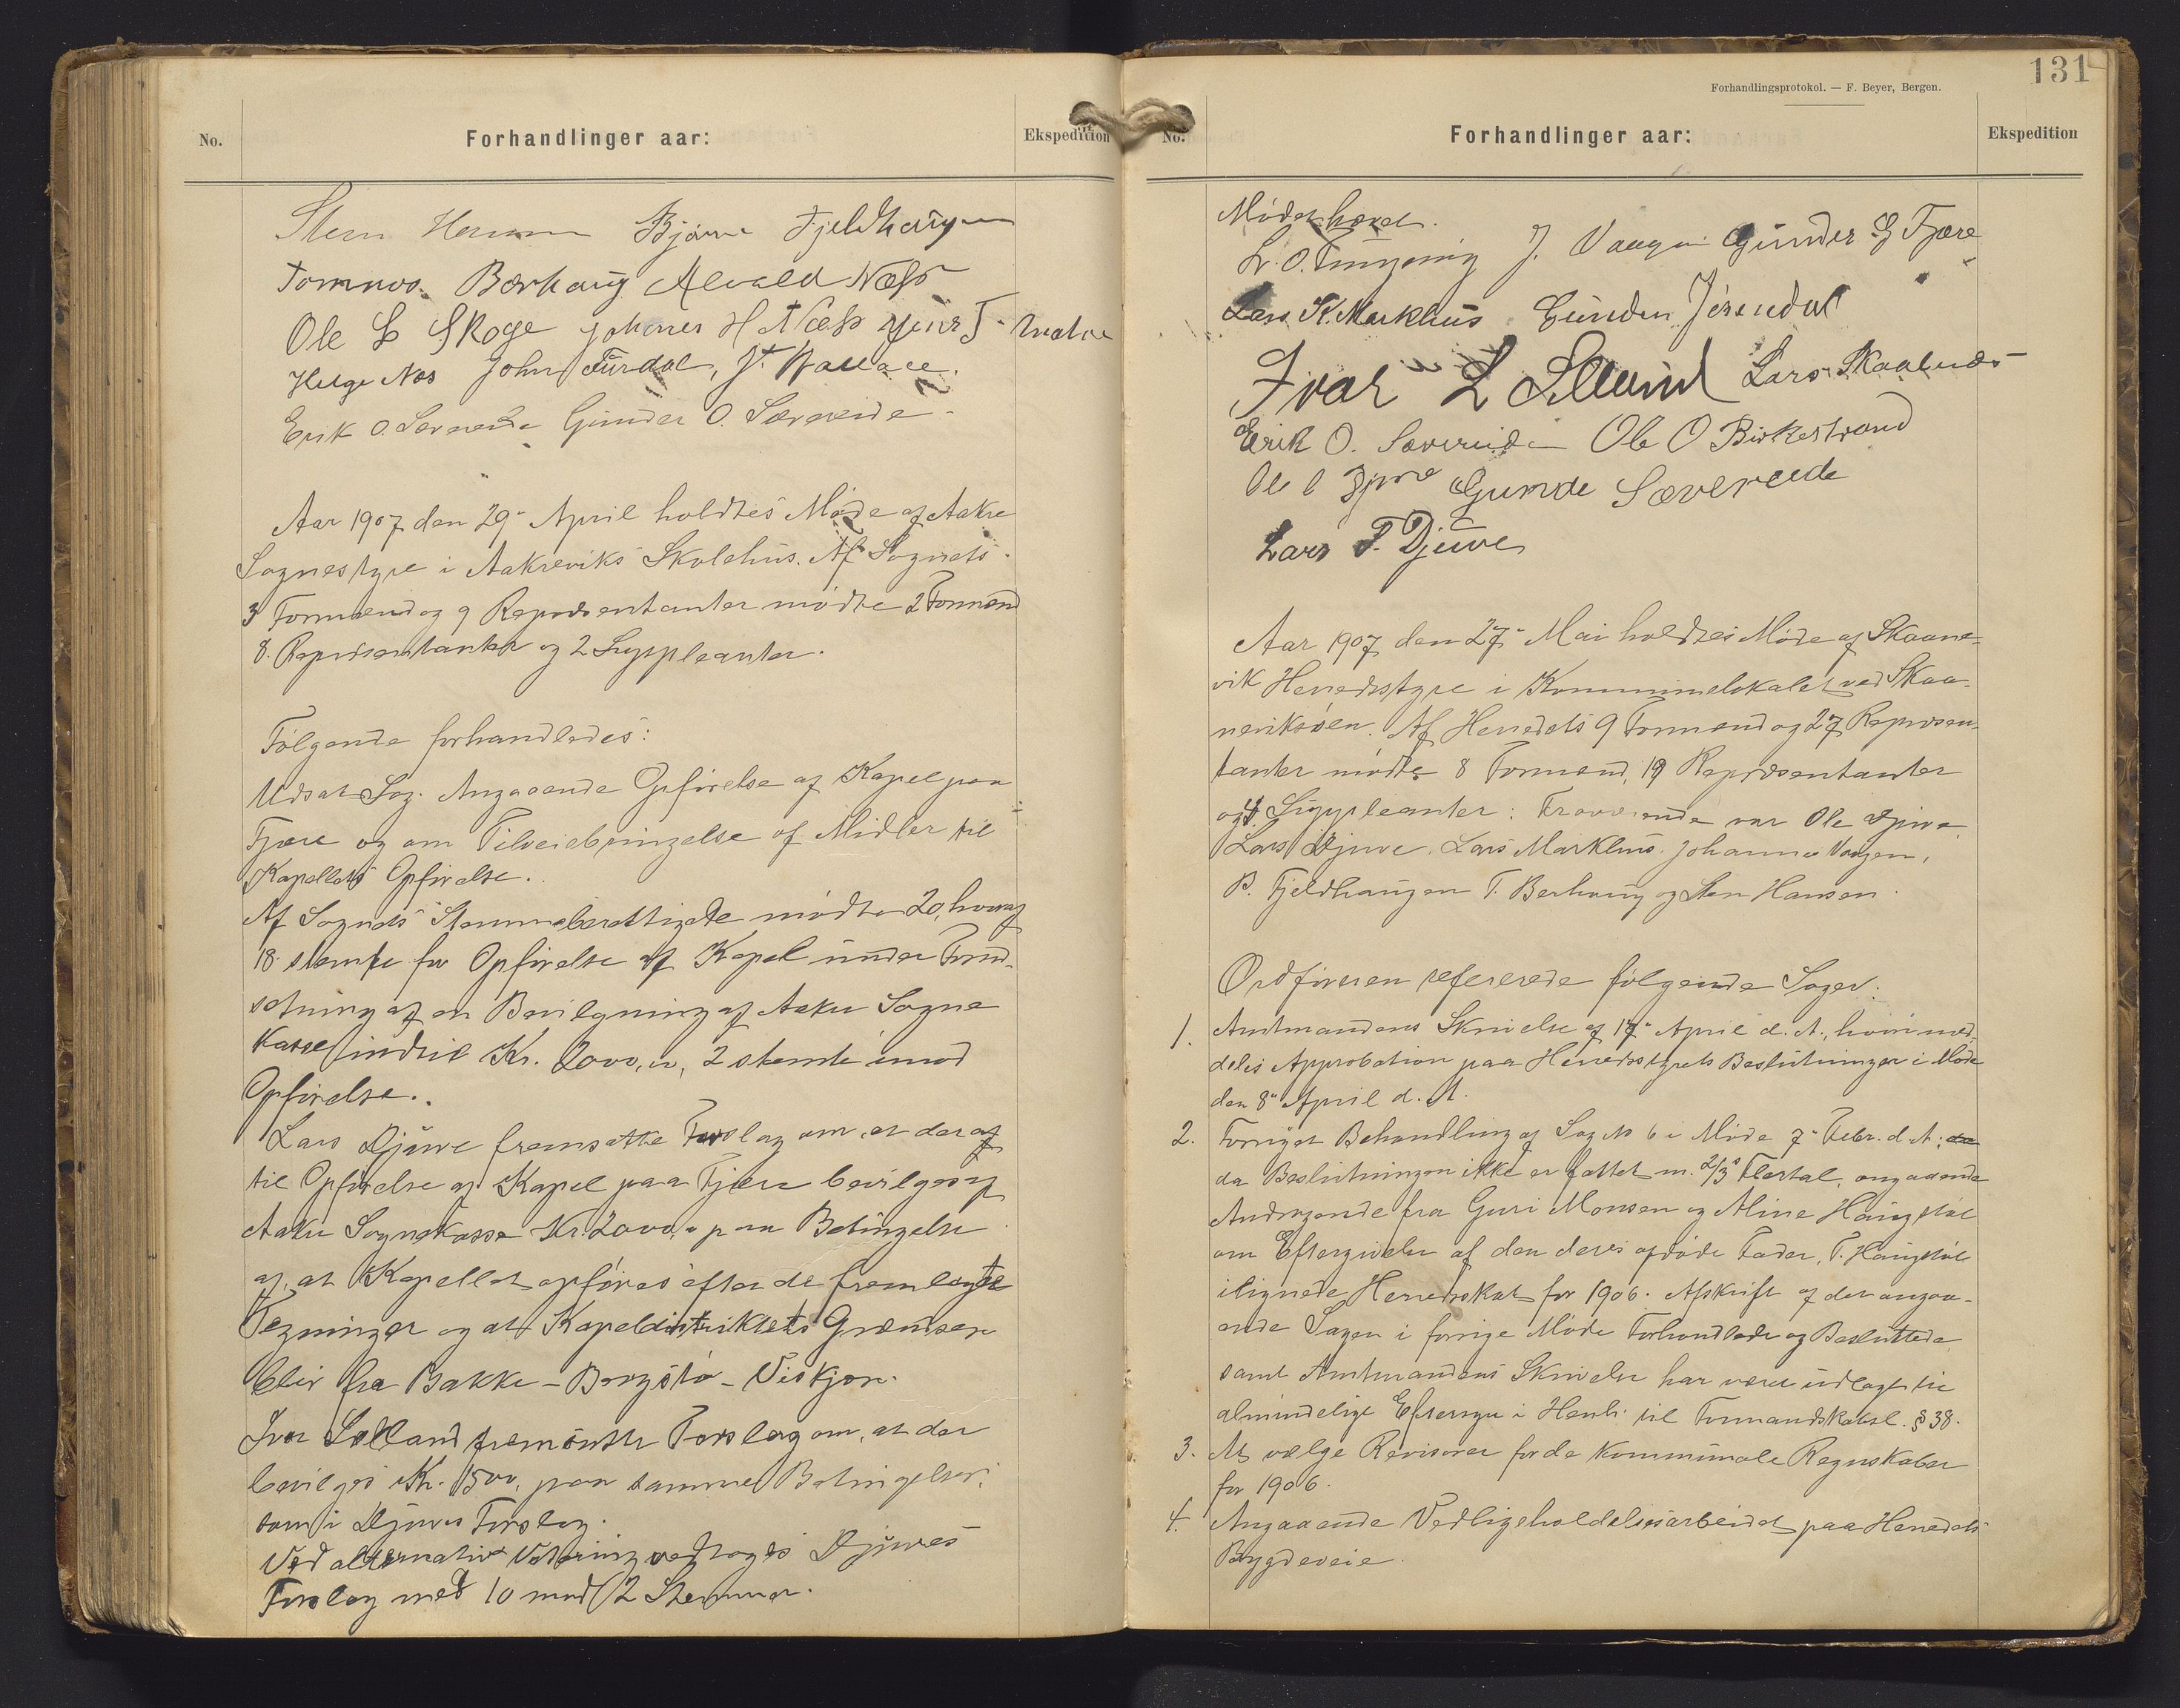 No.
Forhandlinger aar:
Ekspedition
Sten Hansen Bjarne Fjeldhaugen
Tommas Berhaug Alvald Næss
Ole L Skoge Johannes H Næss
Helge Næs John Turdal, J.
Erik O. Særeide Gunder O. Sævereide
Aar 1907 den 29de April holdtes Møde af Aakre
Sognestyre i Aakreviks Skolehus. Af Sognets
3 Formænd og 9 Repræsentanter mødte 2 Formænd
8 Repræsentanter og 2 Suppleanter.
Følgende forhandledes:
Udsat Sag. Angaaende Opførelse af Kapel paa
Fjære og om Tilveiebringelse af Midler til
Kapellets Opførelse.
Af Sognets Stemmeberettigede mødte 20, hvoraf
18 stemte for Opførelse af Kapel under Forud-
sætning af en Bevilgning af Aakre Sogne
kasse indtil Kr. 2000,00, 2 stemte imod
Opførelse.
Lars Djuve fremsatte Forslag om, at der af
til Opførelse af Kapel paa Fjære bevilges af
Aakre Sognekasse Kr. 2000,00 paa Betingelse
af, at Kapellet opføres efter de fremlagte
Tegninger og at Kapeldistriktets Grænser
blir fra Bakke - Borgstø - Viskjær.
Ivar Sælland fremsatte Forslag om, at der
bevilges Kr. 1500, paa samme Betingelser
som i Djuves Forslag.
Ved alternativ Votering vedtoges Djuves
Forslag med 10 mod 2 Stemmer.
131
Forhandlingsprotokol. — F. Beyer, Bergen.
No.
Forhandlinger aar:
Ekspedition
Mødet hævet.
L. O. Tungesvig J. Vaagen Gunder G Fjære
Lars K. Markhus Gunder Jørendal
Ivar L Sælland Lars Skaalnæs
Erik O. Sævereide Ole O Birkestrand
Ole O Gunde Sævereide
Lars T. Djuve
Aar 1907 den 27de Mai holdtes Møde af Skaane-
vik Herredsstyre i Kommunelokalet ved Skaa-
neviksøen. Af Herredets 9 Formænd og 27 Repræsen-
tanter mødte 8 Formænd, 19 Repræsentanter
og 4 Suppleanter: Fraværende var Ole Djuve
Lars Djuve, Lars Markhus, Johannes Vaagen,
B. Fjeldhaugen T. Berhaug og Sten Hansen.
Ordføreren refererede følgende Sager:
1. Amtmandens Skrivelse af 17de April d. A., hvori med-
deles Approbation paa Herredsstyrets Beslutninger i Møde
den 8de April d. A.
2. Fornyet Behandling af Sag No 6 i Møde 7de Febr. d. A;
da Beslutningen ikke er fattet m. 2/3s Flertal, angaaende
Andragende fra Guri Monsen og Aline Haugstøl
om Eftergivelse af den deres afdøde Fader, T. Haugstøl
ilignede Herredsskat for 1906. Afskrift af det angaa-
ende Sagen i forrige Møde Forhandlede og Besluttede,
samt Amtmandens Skrivelse har været udlagt til
almindelige Eftersyn i Henh. til Formandskabsl. § 38.
3. At vælge Revisorer for de kommunale Regnskaber
for 1906.
4. Angaaende Vedligeholdelsesarbeidet paa Herredets
Bygdeveie.